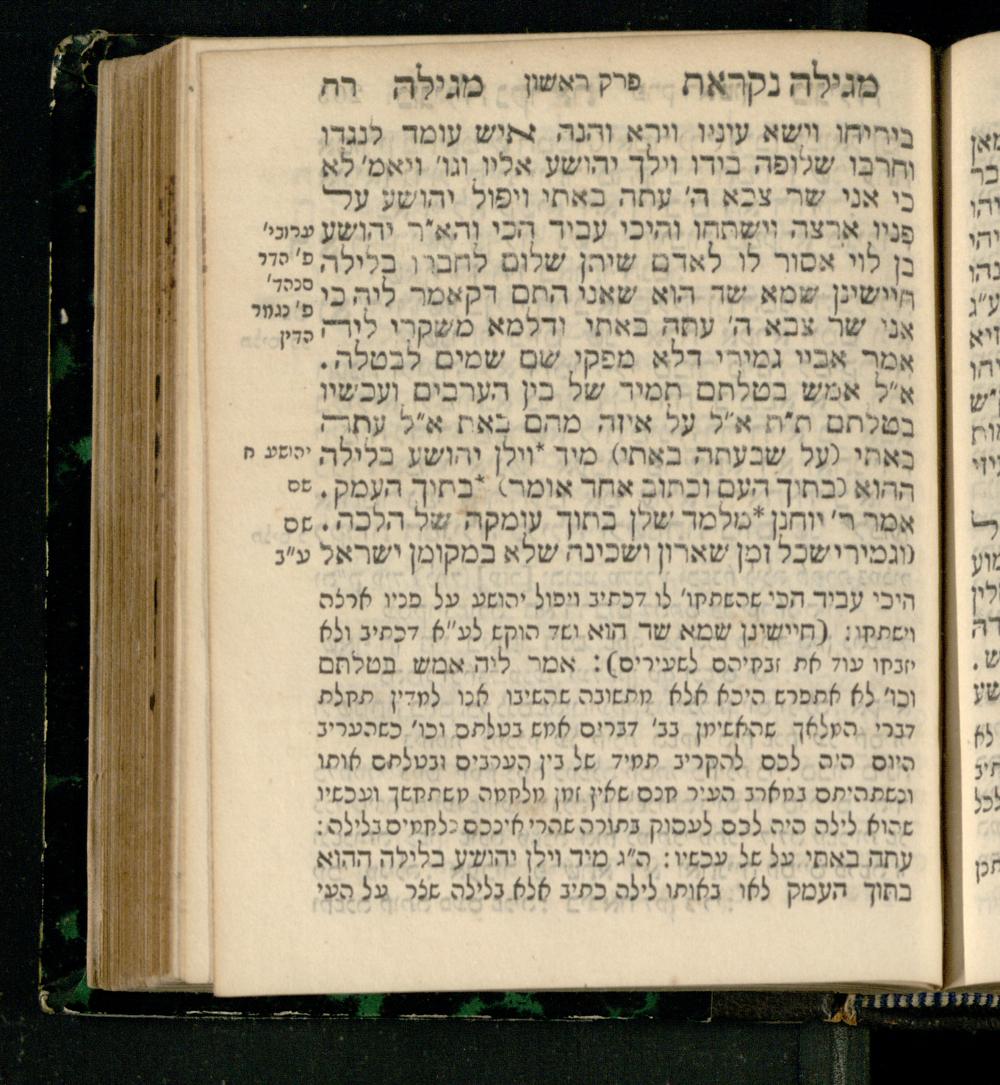 מגילה נקראת פרק ראשון מגילה רח
ביריחו וישא עיניו וירא והנה איש עומד לנגדו
וחרבו שלופה בידו וילך יהושע אליו וגו' ויאמ' לא
כי אני שר צבא ה' עתה באתי ויפול יהושע על
פניו ארצה וישתחו והיכי עביד הכי והא"ר יהושע
בן לוי אסור לו לאדם שיתן שלום לחברו בלילה
חיישינן שמא שד הוא שאני התם דקאמר ליה כי
אני שר צבא ה' עתה באתי ודלמא משקרי ליה
אמר אביי גמירי דלא מפקי שם שמים לבטלה.
א"ל אמש בטלתם תמיד של בין הערבים ועכשיו
בטלתם ת"ת א"ל על איזה מהם באת א"ל עתה
באתי (על שבעתה באתי) מיד *וילן יהושע בלילה
ההוא (בתוך העם וכתוב אחד אומר) *בתוך העמק.
אמר ר' יוחנן *מלמד שלן בתוך עומקה של הלכה.
(וגמירי שכל זמן שארון ושכינה שלא במקומן ישראל
ערובי'
פ' הדר
סנהד'
פ' נגמר
הדין
יהושע ח
שם
שם
ע"ב
היכי עביד הכי שהשתקו' לו דכתיב ויפול יהושע על פניו ארצה
וישתחו: (חיישינן שמא שד הוא ושד הוקש לע"א דכתיב ולא
יזבחו עוד את זבחיהם לשעירים): אמר ליה אמש בטלתם
וכו' לא אתפרש היכא אלא מתשובה שהשיבו אנו למדין תחלת
דברי המלאך שהאשימן בב' דברים אמש בטלתם וכו' כשהעריב
היום היה לכם להקריב תמיד של בין הערבים ובטלתם אותו
ונשתהיתם במארב העיר חנם שאין זמן מלחמה משתחשך ועכשיו
שהוא לילה היה לכם לעסוק בתורה שהרי אינכם נלחמים בלילה:
עתה באתי על של עכשיו: ה"ג מיד וילן יהושע בלילה ההוא
בתוך העמק לאו באותו לילה כתיב אלא בלילה שצר על העי